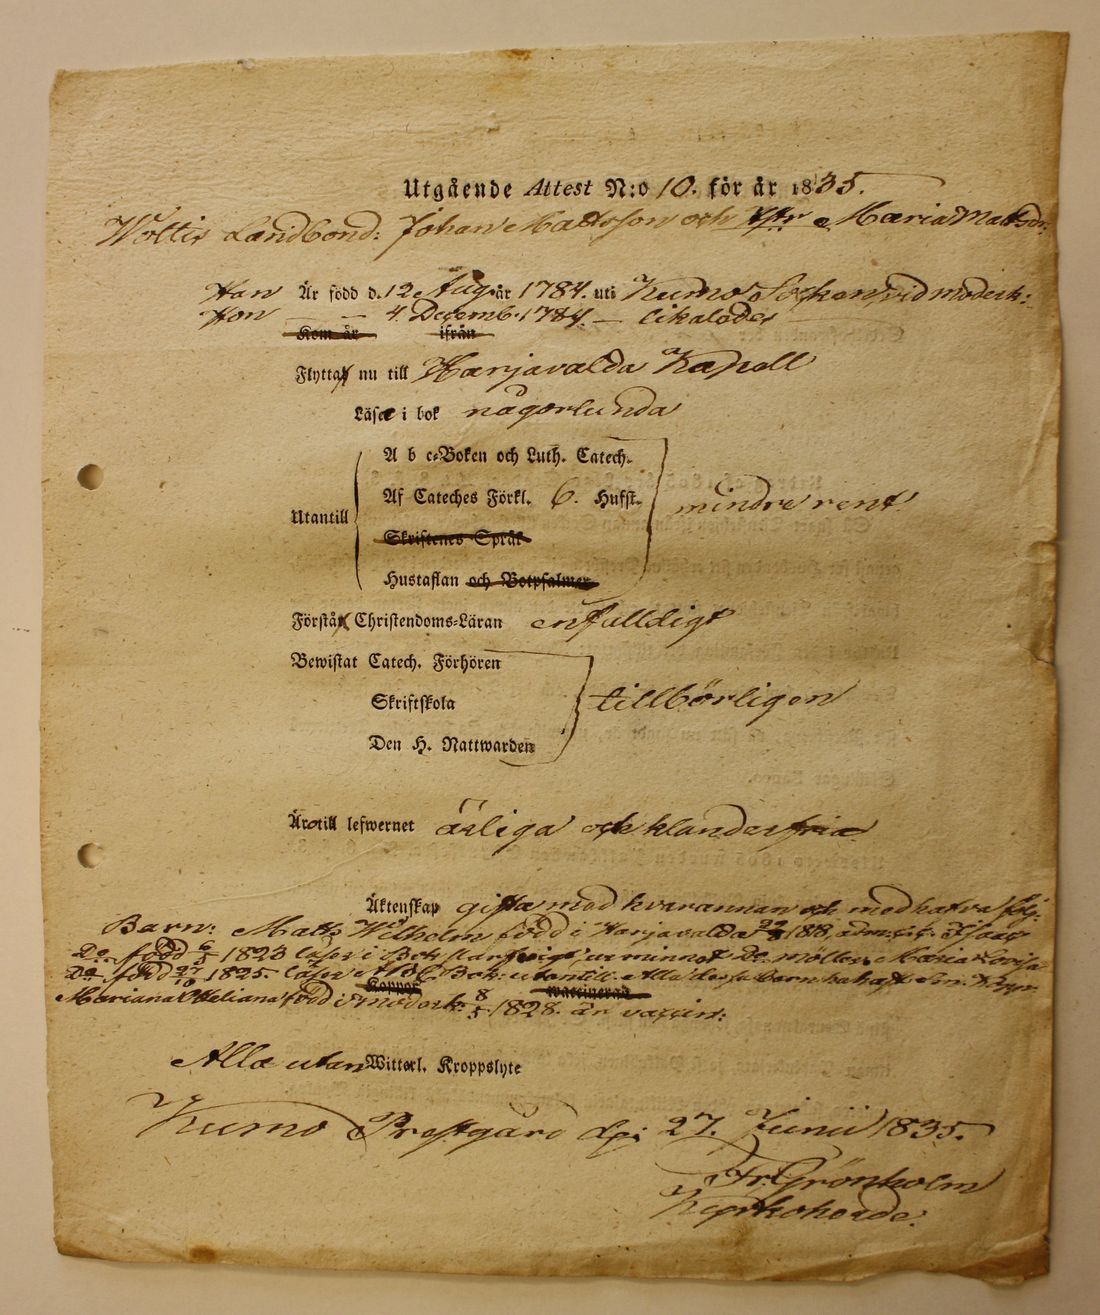 Utgående Attest N:o 10. för år 1835.
Woltis Landbond: Johan Mattsson och Hstr Maria Mattsdr:
Han Är född d. 12 Aug. år 1784. uti Kumo Sokn vid moderk:
Hon — — 4. Decemb. 1784. — likaledes
Kom år ifrån
Flytta nu till Harjavalda Kapell
Läsa i bok någorlunda
A b c-Boken och Luth. Catech.
Af Cateches Förkl. 6. Hufst.
Utantill mindre rent
Skriftenes Språk
Hustaflan och Botpsalmer
Förstå Christendoms-Läran enfalldigt
Bewistat Catech. Förhören
Skriftskola tillbörligen
Den H. Nattwarden
Äro till lefwernet ärliga och klanderfria
Äktenskap gifta med hvarannan och med hafva följ:
Barn: Matts Wilhelm född i Harjavalda 1818 Isaac
Do född 6/5 1823 läser i Bok utur minnet Maria Lovisa
Do född 27/10 1825 läser Bok: utantill Alla dessa Barn haft Kopp:
Koppor waccinerad
Mariana född i moderk: 8/5 1828. är vaccin:
Alla utan Witterl. Kroppslyte
Kumo Prestgård d. 27. Junii 1835.
Fr. Grönholm
Kyrkoherde.